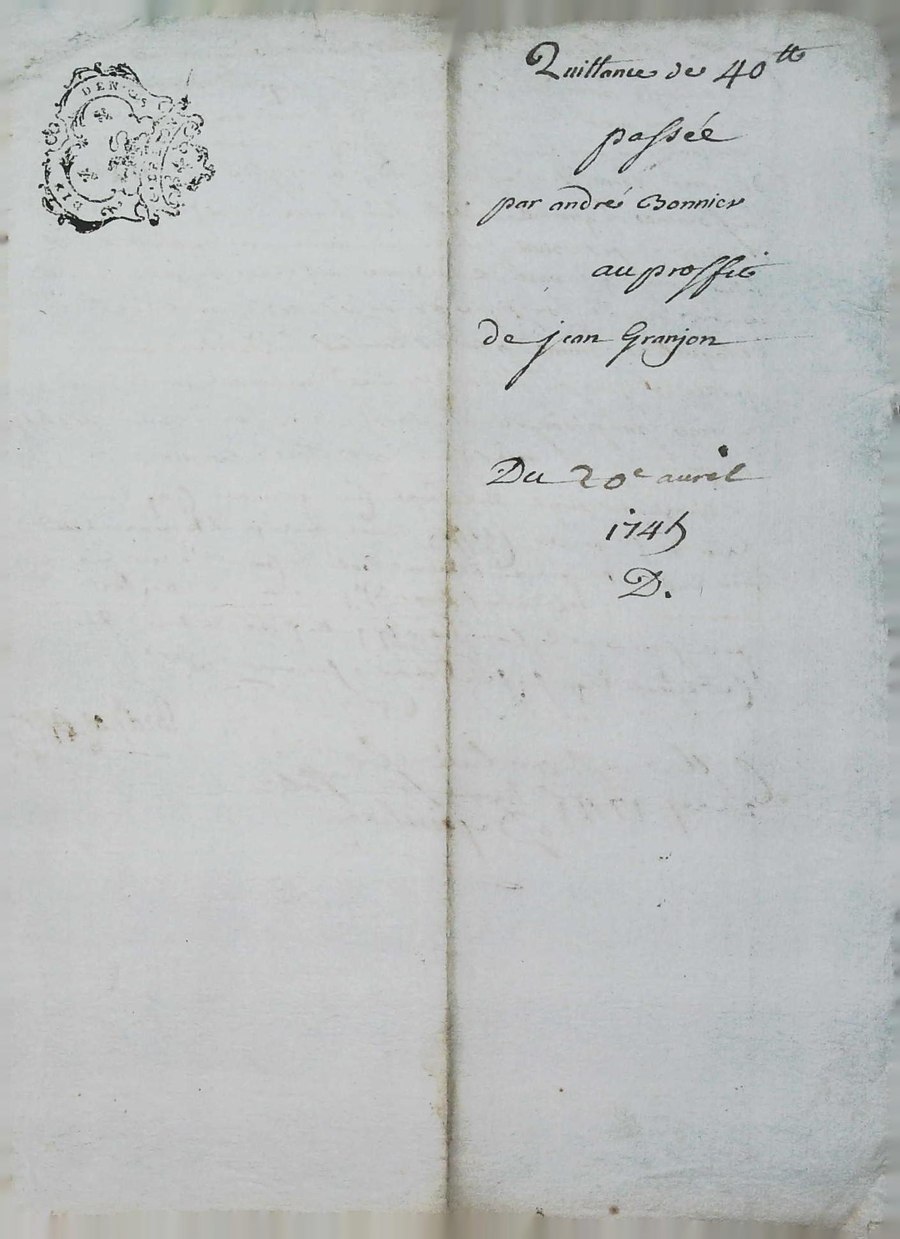 DEN•S
Quittance de 40tt
passée
par andré Bonnier
au proffit
de jean Granjon
Du 20e avril
1745
D.